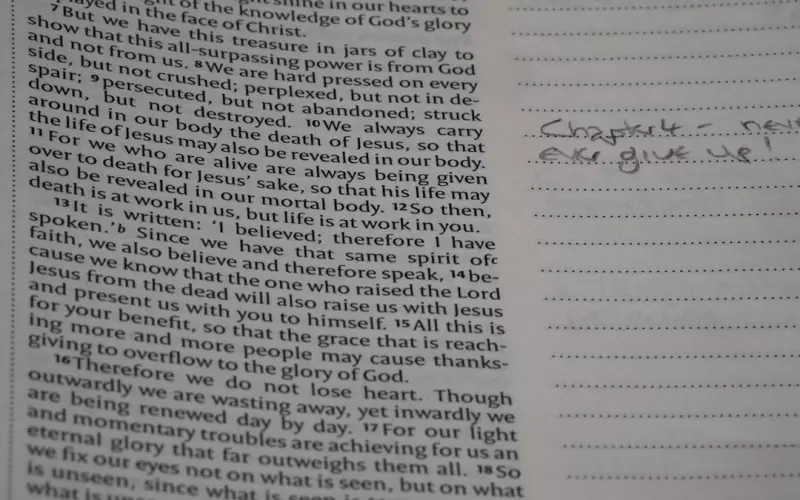 shine in our hearts to
of the knowledge of God's glory
played in the face of Christ.
7 But we have this treasure in jars of clay to
show that this all-surpassing power is from God
and not from us. 8 We are hard pressed on every
side, but not crushed; perplexed, but not in de-
spair; 9 persecuted, but not abandoned; struck
down, but not destroyed. 10 We always carry
around in our body the death of Jesus, so that
the life of Jesus may also be revealed in our body.
11 For we who are alive are always being given
over to death for Jesus' sake, so that his life may
also be revealed in our mortal body. 12 So then,
death is at work in us, but life is at work in you.
13 It is written: 'I believed; therefore I have
spoken.'b Since we have that same spirit ofc
faith, we also believe and therefore speak, 14 be-
cause we know that the one who raised the Lord
Jesus from the dead will also raise us with Jesus
and present us with you to himself. 15 All this is
for your benefit, so that the grace that is reach-
ing more and more people may cause thanks-
giving to overflow to the glory of God.
16 Therefore we do not lose heart. Though
outwardly we are wasting away, yet inwardly we
are being renewed day by day. 17 For our light
and momentary troubles are achieving for us an
eternal glory that far outweighs them all. 18 So
we fix our eyes not on what is seen, but on what
is unseen, since what is seen is
what is
Chapter 4 - nev
ever give up!